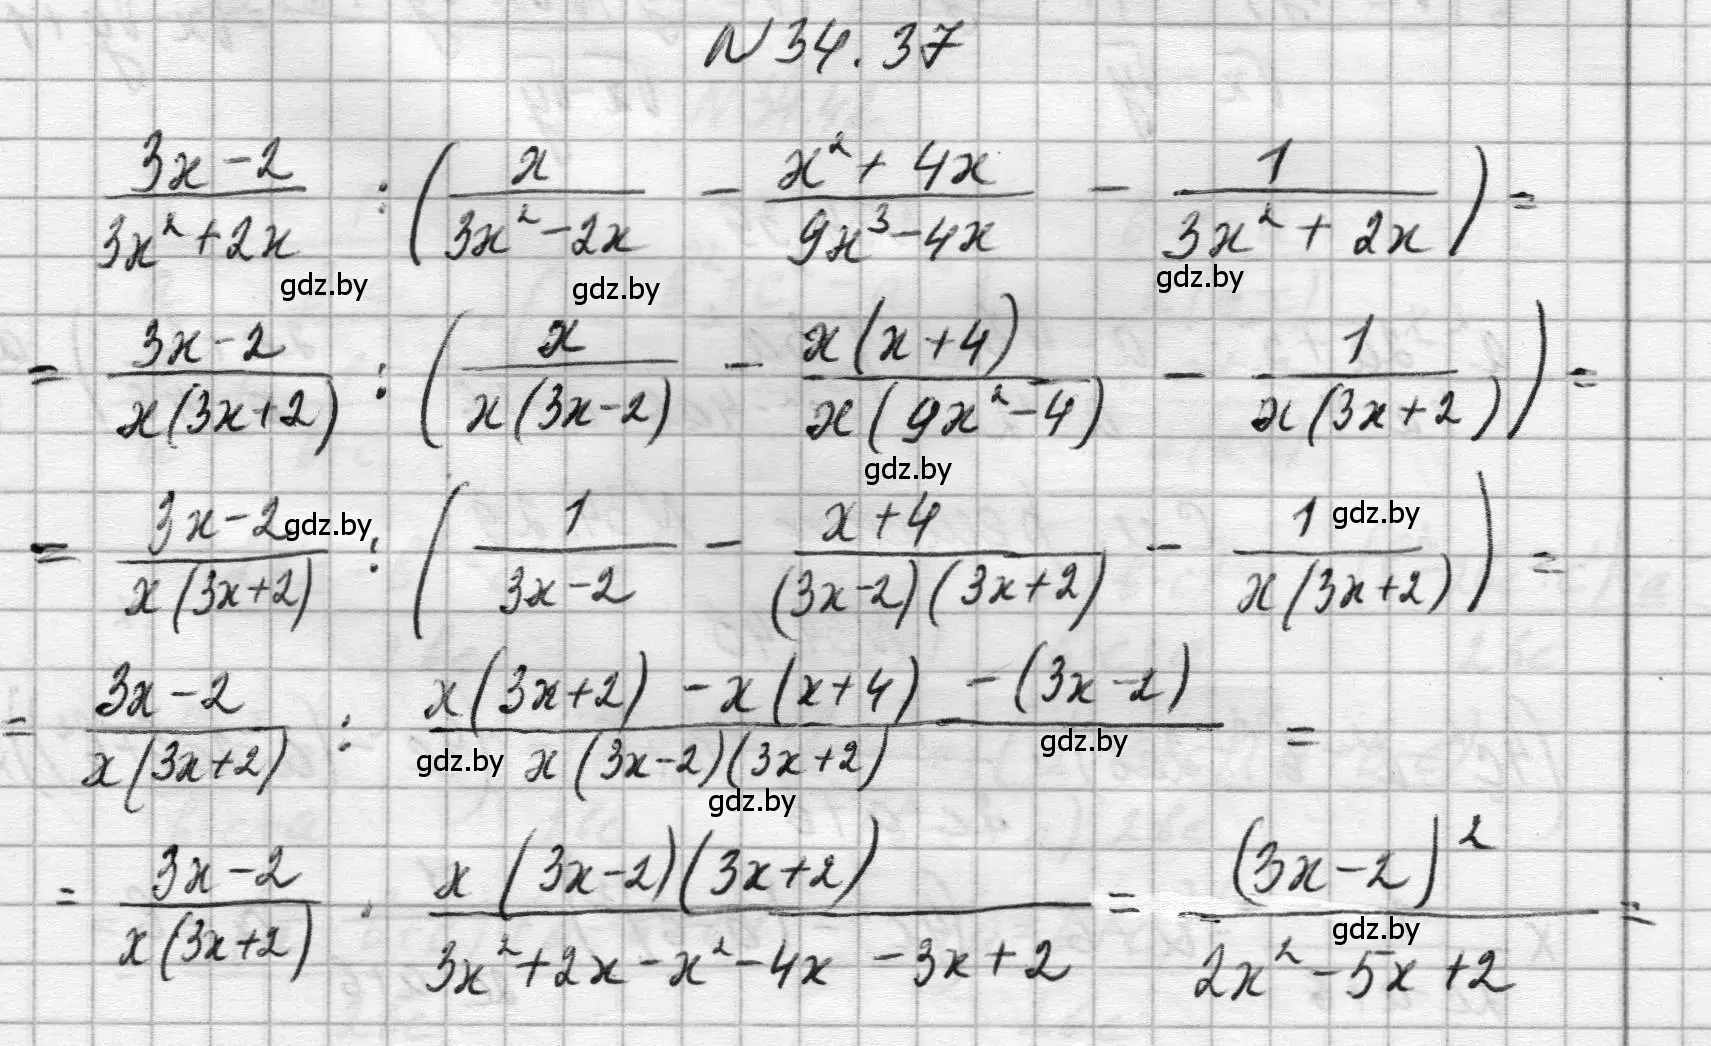 N 34.37
(3x-2)/(3x²+2x) : (x/(3x²-2x) - (x²+4x)/(9x³-4x) - 1/(3x²+2x)) =
gdz.by gdz.by gdz.by
= (3x-2)/(x(3x+2)) : (x/(x(3x-2)) - x(x+4)/(x(9x²-4)) - 1/(x(3x+2))) =
gdz.by
= (3x-2)/(x(3x+2)) : (1/(3x-2) - (x+4)/((3x-2)(3x+2)) - 1/(x(3x+2))) =
gdz.by gdz.by
= (3x-2)/(x(3x+2)) : (x(3x+2) - x(x+4) - (3x-2))/(x(3x-2)(3x+2)) =
gdz.by gdz.by gdz.by
= (3x-2)/(x(3x+2)) · x(3x-2)(3x+2)/(3x²+2x-x²-4x-3x+2) = (3x-2)²/(2x²-5x+2) =
gdz.by